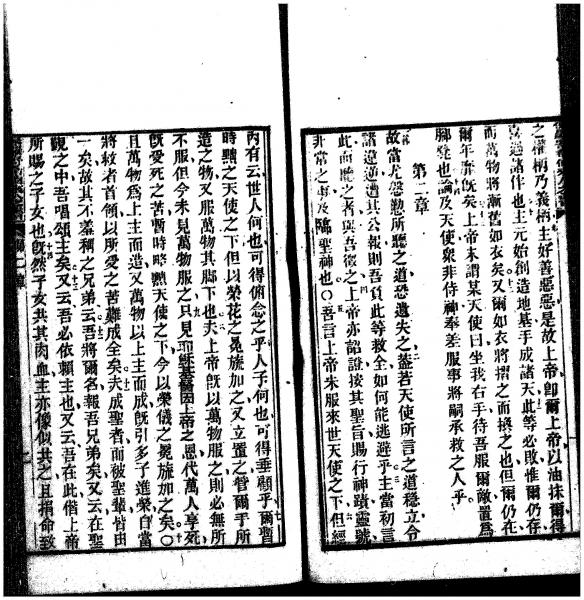 之權柄乃義柄主好善惡惡是故上帝卽爾上帝以油抹爾得
喜過諸伴也主元始創造地基手成諸天此等必敗惟爾仍存
而萬物將漸舊如衣矣又爾如衣將摺之而換之也但爾仍在
爾年靡旣矣上帝未謂某天使曰坐我右手待吾服爾敵置爲
腳凳也論及天使衆非侍神奉差服事將嗣承救之人乎
第二章
故當尤慇懃所聽之道恐遺失之蓋若天使所言之道穩立令
諸違逆遭其公報則吾負此等救全如何能逃避乎主當初言
此而聽之者與吾徵之上帝亦詔證按其聖旨賜行神蹟靈號
非常之事及賜聖神也○吾言上帝未服來世天使之下但經
內有云世人何也可得俯念之乎人子何也可得垂顧乎爾暫
時黜之天使之下但以榮花之冕旒加之又立置之管爾手所
造之物又服萬物其腳下也夫上帝旣以萬物服之則必無所
不服但今未見萬物服之只見耶穌基督因上帝之恩代萬人享死
旣受死之苦暫時略黜天使之下今以榮儀之冕旒加之矣○
且萬物爲上主而造又萬物以上主而成旣引多子進榮自當
將救者首領以所受之苦難成全矣夫成聖者而被聖輩皆由
一矣故其不羞稱之兄弟云吾將爾名報吾兄弟矣又云在聖
觀之中吾唱頌主矣又云吾必依賴主也又云吾在此偕上帝
所賜之子女也旣然子女共其肉血主亦像似共之且捐命致